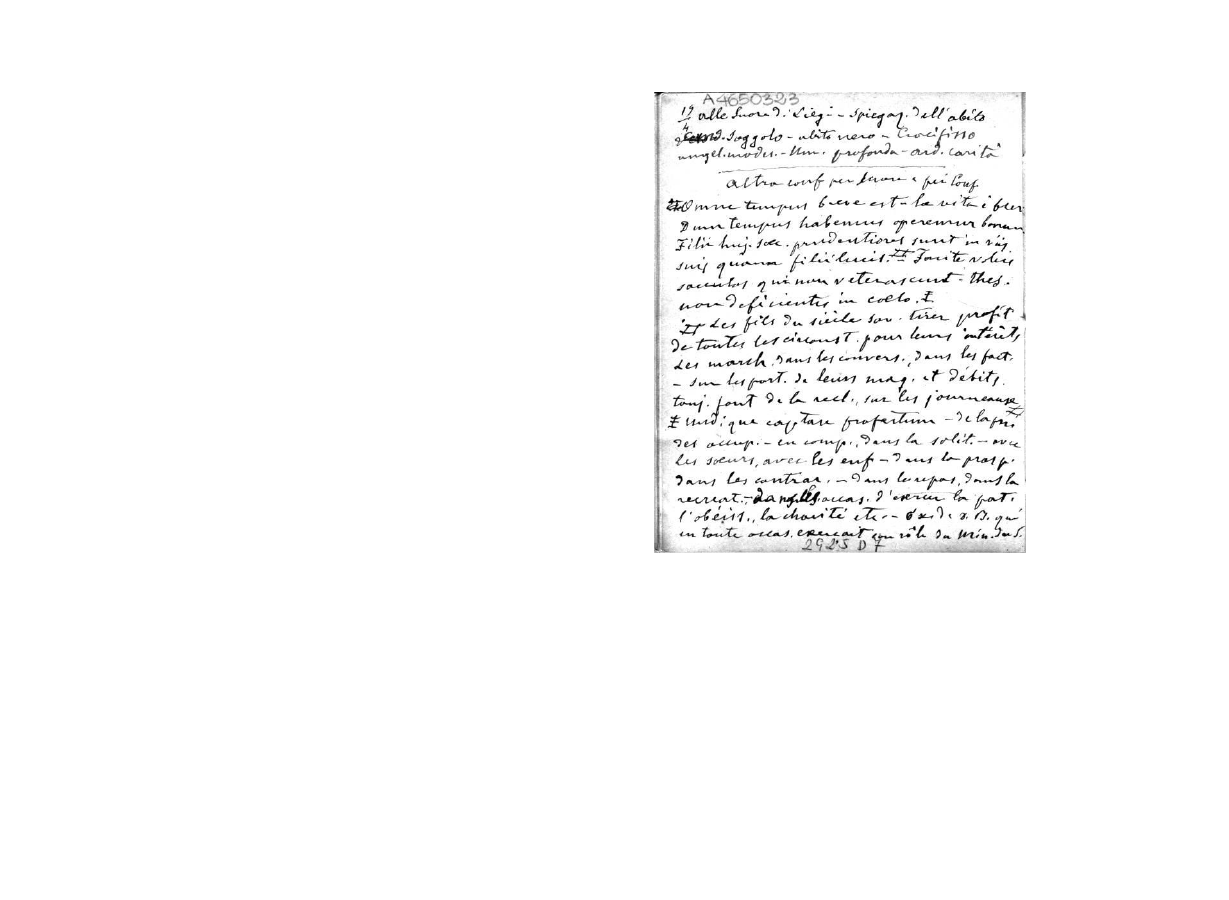 A4650323
19 alle Suore di Liegi - Spiegaz. dell'abito
4 Soggolo - abito nero - Crocifisso
angel. modes. - Um. profonda - ard. carità
Altra conf per Suore e più Conf.
Omne tempus breve est - la vita è brev
Dum tempus habemus operemur bonum
Filii huj. saec. prudentiores sunt in viis
suis quam filii lucis. Facite vobis
sacculos qui non veterascunt - thes.
non deficientis in coelo. ‡
Les fils du siècle sav. tirer profit
de toutes les circonst. pour leurs intérêts
Les march. dans les convers., dans les fact.
- sur les port. de leurs mag. et débits.
touj. font de la recl., sur les journeaux
‡ undique captare profectum - de la
des occup. - en comp., dans la solit. - avec
les soeurs, avec les enf - dans la prosp.
dans les contrar. - dans le repas, dans la
recreat. - dans les occas. d'exercer la pat.
l'obéiss., la charité etc. - de D. B. qui
en toute occas. exerçait son rôle du Min. du S.
2925 D 7